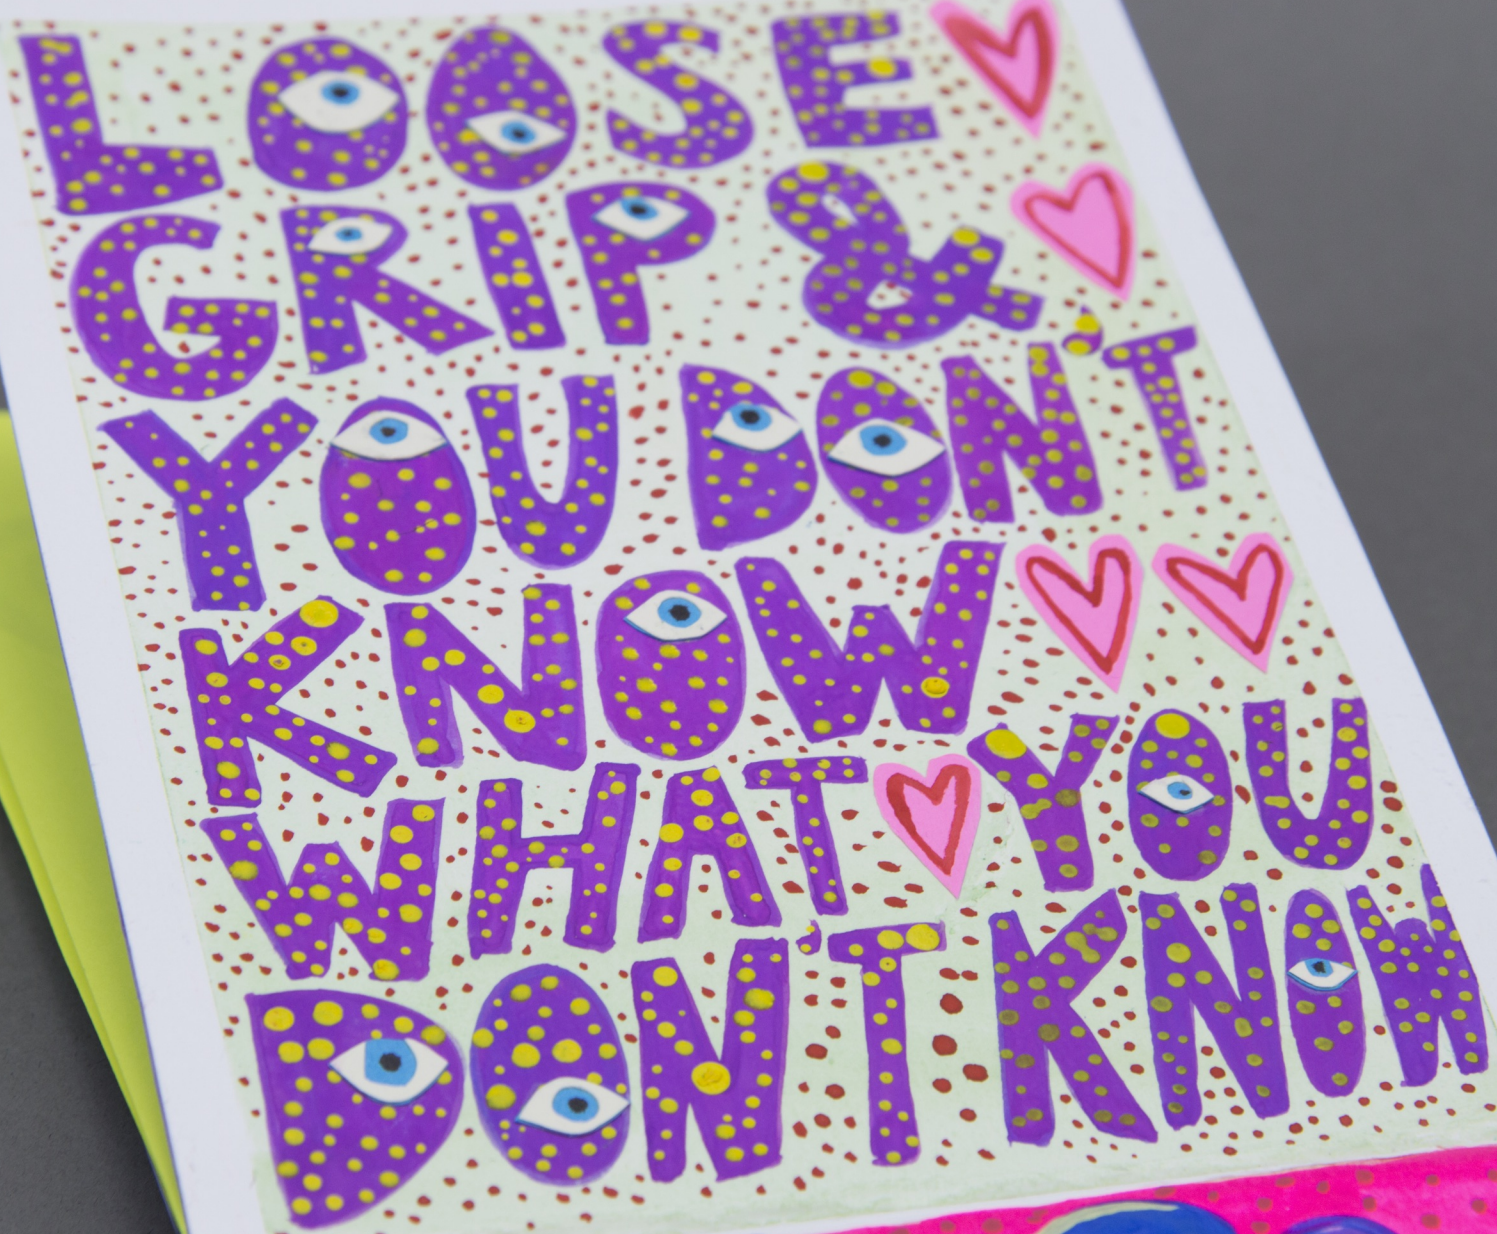 LOOSE
GRIP &
YOU DON'T
KNOW
WHAT YOU
DON'T KNOW